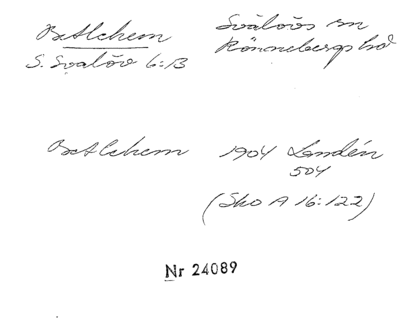 Betlehem Svalövs sn
S. Svalöv 6:13 Rönnebergs hd
Betlehem 1904 Landén
504
(Sko A 16:122)
Nr 24089